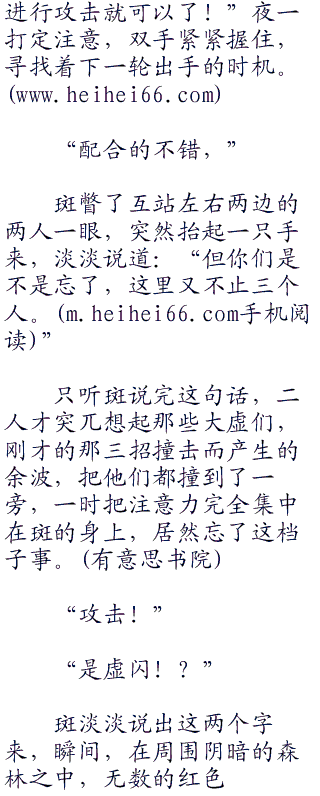 进行攻击就可以了！”夜一
打定注意，双手紧紧握住，
寻找着下一轮出手的时机。
(www.heihei66.com)
“配合的不错，”
斑瞥了互站左右两边的
两人一眼，突然抬起一只手
来，淡淡说道：“但你们是
不是忘了，这里又不止三个
人。(m.heihei66.com手机阅
读)”
只听斑说完这句话，二
人才突兀想起那些大虚们，
刚才的那三招撞击而产生的
余波，把他们都撞到了一
旁，一时把注意力完全集中
在斑的身上，居然忘了这档
子事。(有意思书院)
“攻击！”
“是虚闪！？”
斑淡淡说出这两个字
来，瞬间，在周围阴暗的森
林之中，无数的红色